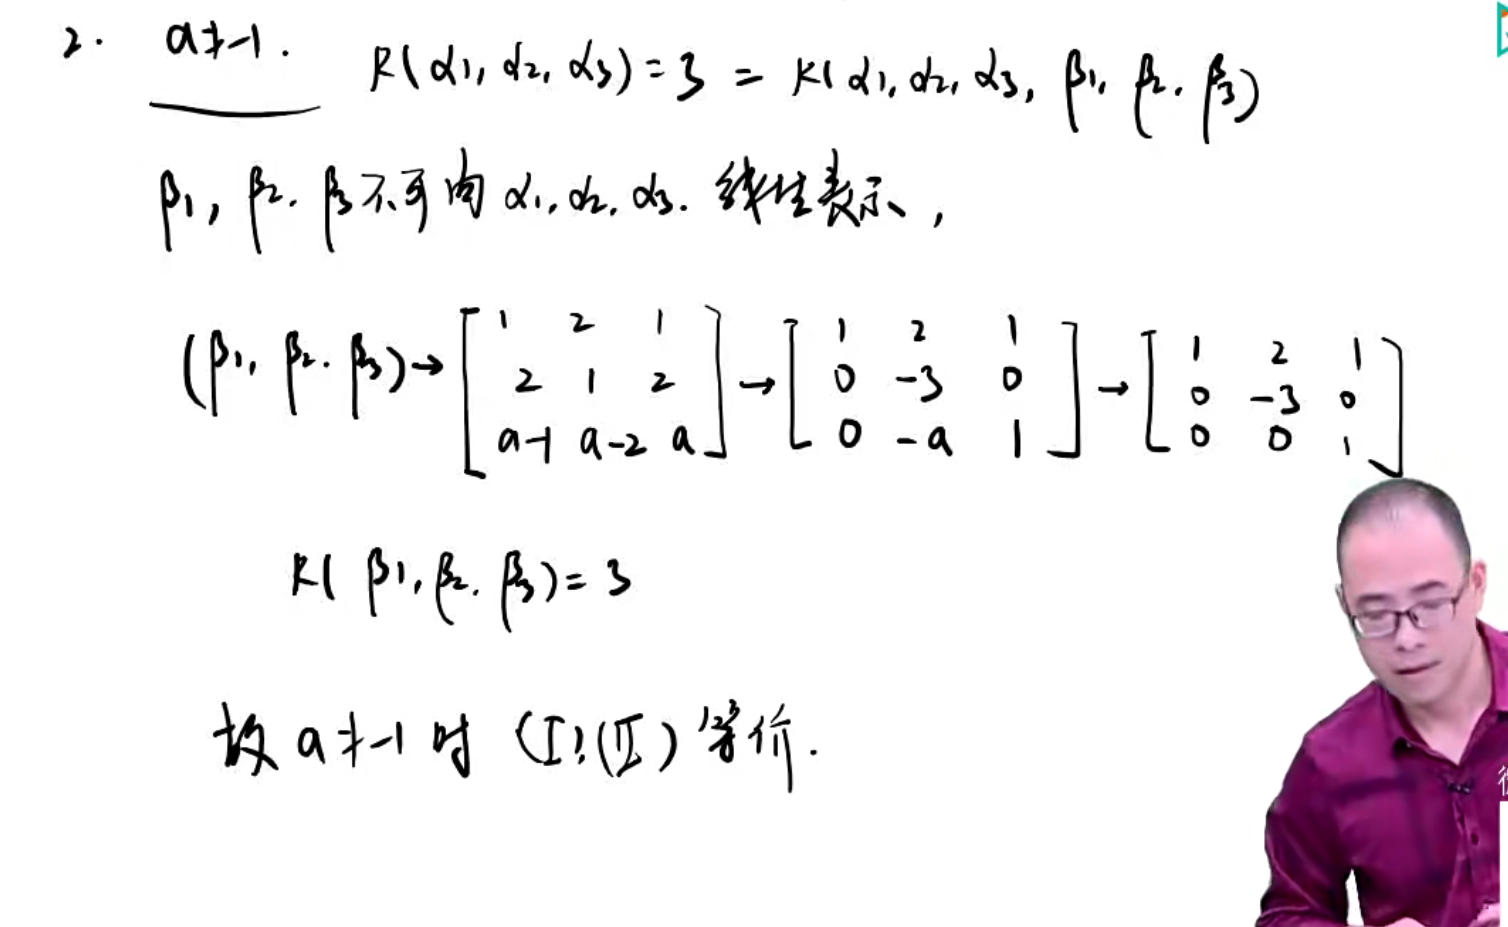 2. a≠-1. R(α1, α2, α3)=3 = R(α1, α2, α3, β1, β2, β3)
β1, β2, β3不可由 α1, α2, α3. 线性表示,
(β1, β2, β3)→[1 2 1; 2 1 2; a-1 a-2 a]→[1 2 1; 0 -3 0; 0 -a 1]→[1 2 1; 0 -3 0; 0 0 1]
R(β1, β2, β3)=3
故 a≠-1 时 (I),(II) 等价.